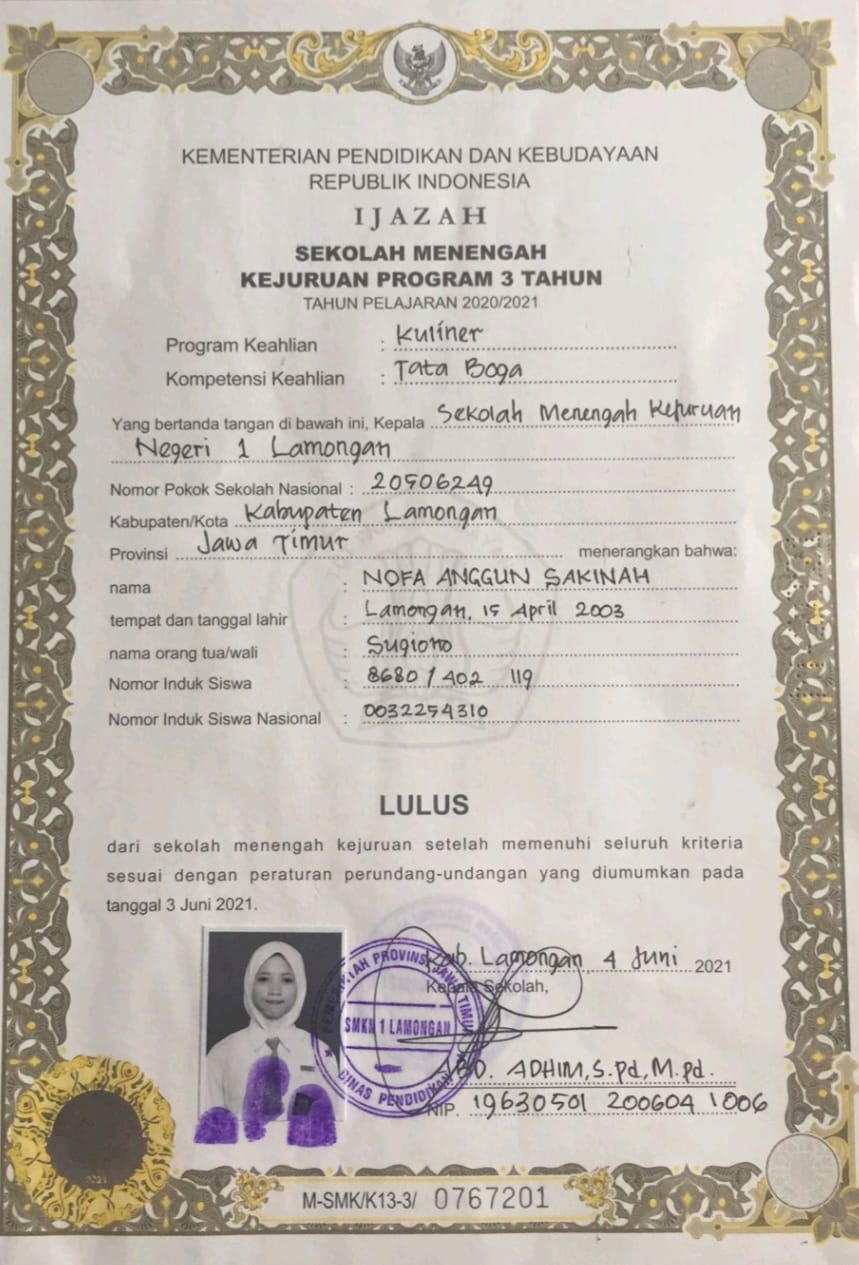 KEMENTERIAN PENDIDIKAN DAN KEBUDAYAAN
REPUBLIK INDONESIA
IJAZAH
SEKOLAH MENENGAH
KEJURUAN PROGRAM 3 TAHUN
TAHUN PELAJARAN 2020/2021
Program Keahlian : Kuliner
Kompetensi Keahlian : Tata Boga
Yang bertanda tangan di bawah ini, Kepala Sekolah Menengah Kejuruan
Negeri 1 Lamongan
Nomor Pokok Sekolah Nasional : 20506249
Kabupaten/Kota Kabupaten Lamongan
Provinsi Jawa Timur menerangkan bahwa:
nama : NOFA ANGGUN SAKINAH
tempat dan tanggal lahir : Lamongan, 15 April 2003
nama orang tua/wali : Sugiono
Nomor Induk Siswa : 8680 / 402 119
Nomor Induk Siswa Nasional : 0032254310
LULUS
dari sekolah menengah kejuruan setelah memenuhi seluruh kriteria
sesuai dengan peraturan perundang-undangan yang diumumkan pada
tanggal 3 Juni 2021.
Kab. Lamongan, 4 Juni 2021
Kepala Sekolah,
PEMERINTAH PROVINSI JAWA TIMUR
SMKN 1 LAMONGAN
DINAS PENDIDIKAN
ABD. ADHIM, S.Pd, M.Pd.
NIP. 19630501 200604 1006
2021
M-SMK/K13-3/ 0767201